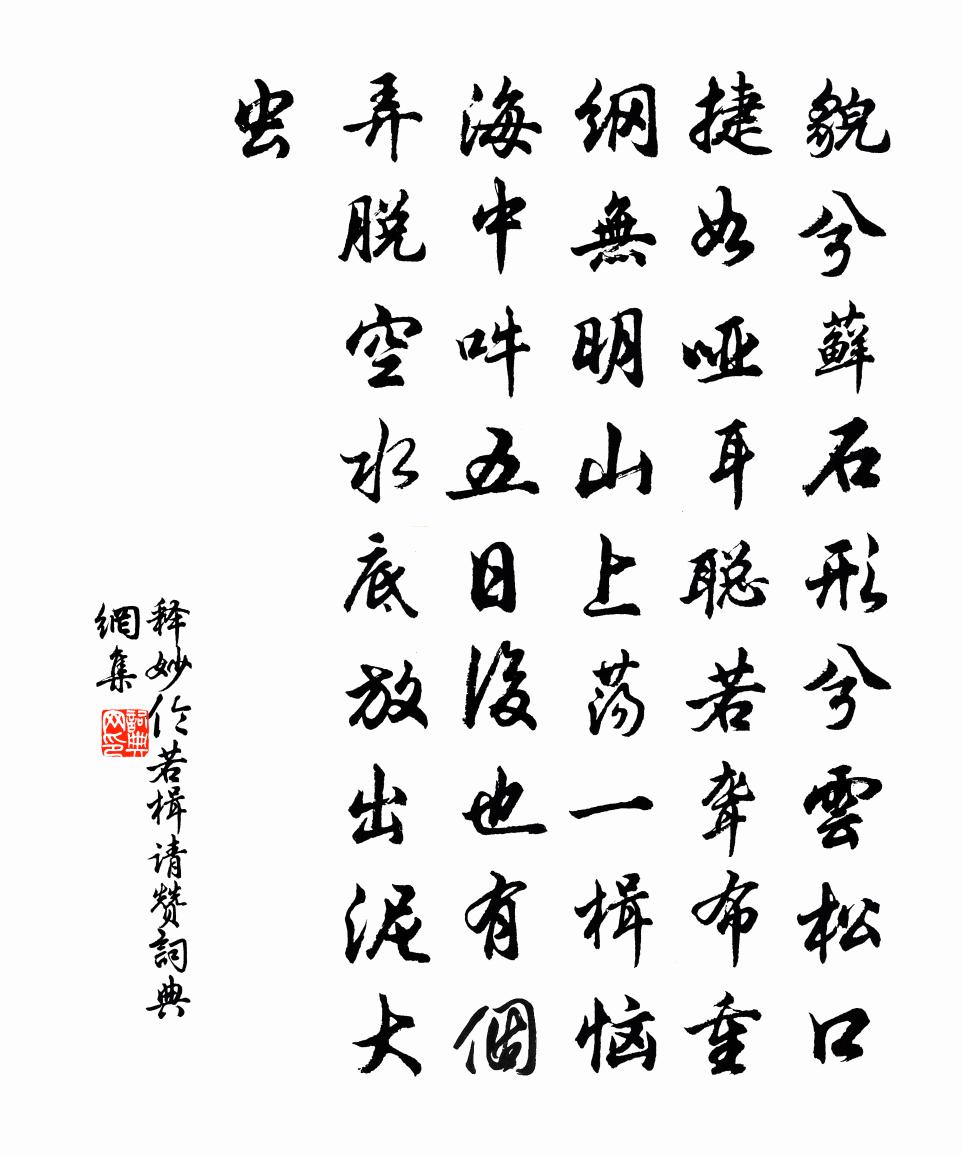 貌兮蘚石形兮雲松口
捷如啞耳聡若聾布重
網無明山上蕩一楫惱
海中吽五日後也有個
弄脱空水底放出泥大
虫
释妙伦若楫请赞詞典
網集
詞典网印